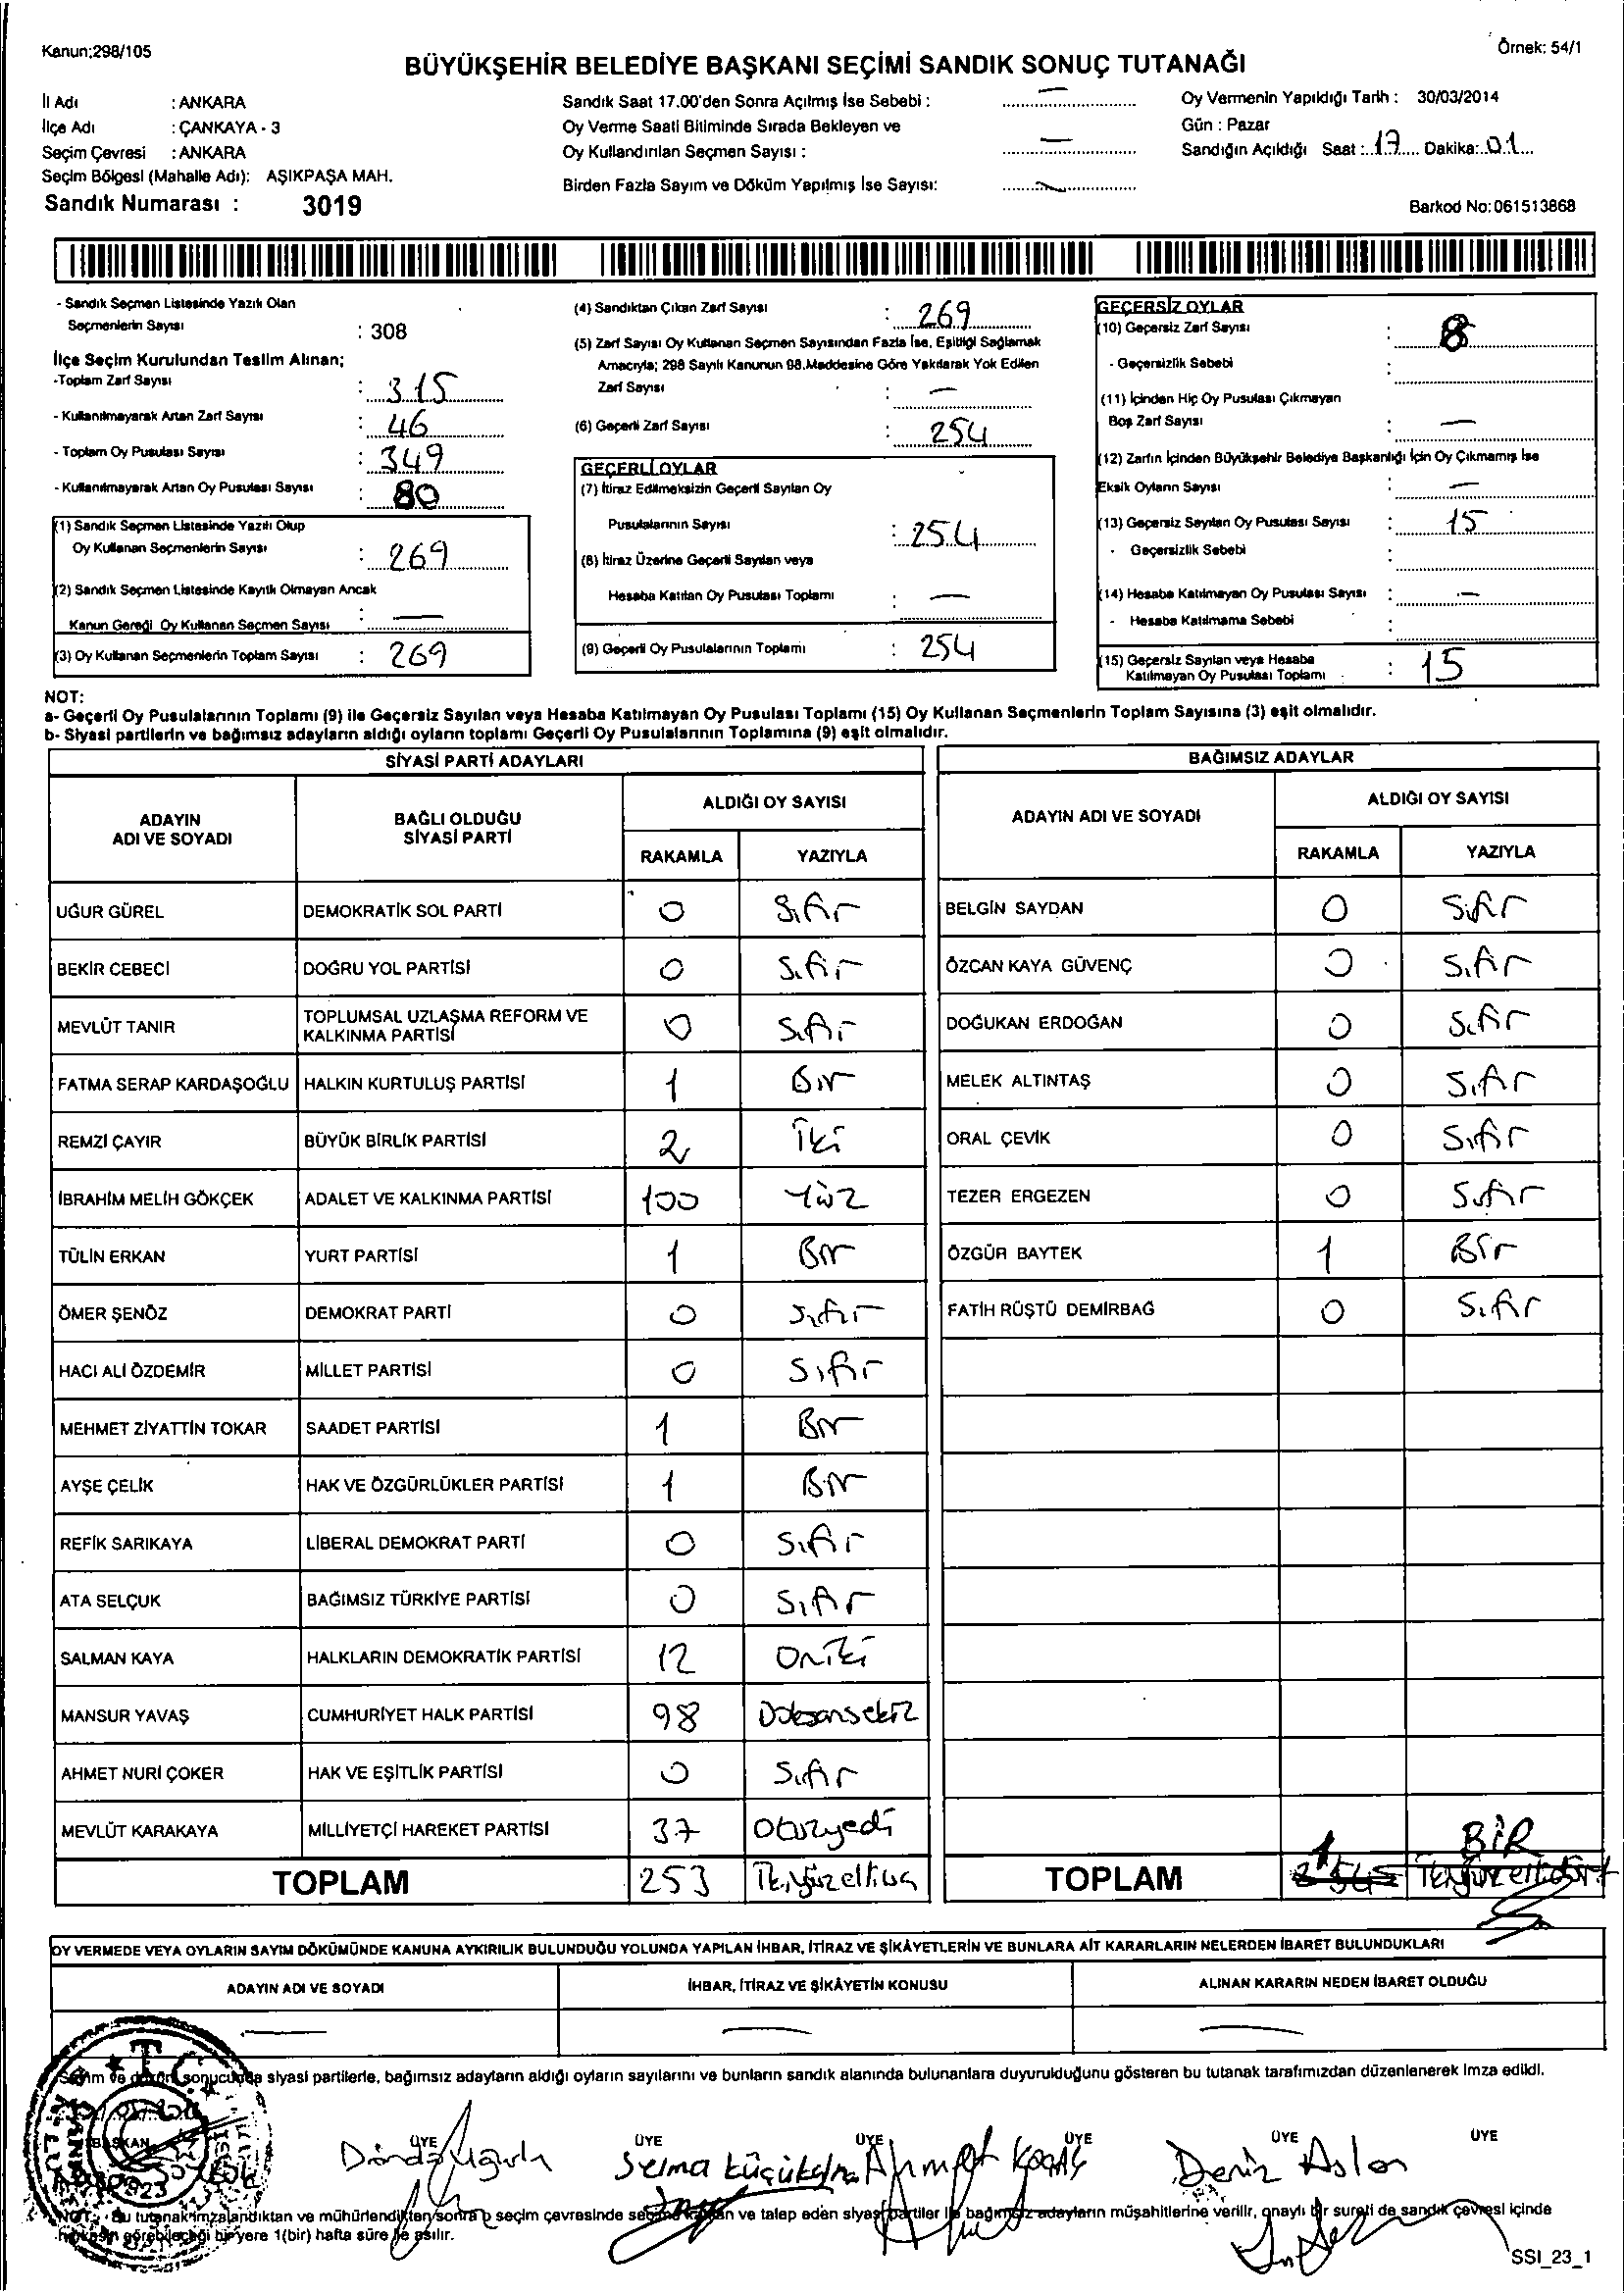 Kanun:298/105
Örnek: 54/1
BÜYÜKŞEHİR BELEDİYE BAŞKANI SEÇİMİ SANDIK SONUÇ TUTANAĞI
İl Adı : ANKARA
İlçe Adı : ÇANKAYA - 3
Seçim Çevresi : ANKARA
Seçim Bölgesi (Mahalle Adı): AŞIKPAŞA MAH.
Sandık Numarası : 3019
Sandık Saat 17.00'den Sonra Açılmış İse Sebebi : —
Oy Verme Saati Bitiminde Sırada Bekleyen ve
Oy Kullandırılan Seçmen Sayısı : —
Birden Fazla Sayım ve Döküm Yapılmış İse Sayısı: —
Oy Vermenin Yapıldığı Tarih : 30/03/2014
Gün : Pazar
Sandığın Açıldığı Saat : 17 Dakika: 01
Barkod No:061513868
- Sandık Seçmen Listesinde Yazılı Olan
Seçmenlerin Sayısı : 308
İlçe Seçim Kurulundan Teslim Alınan;
-Toplam Zarf Sayısı : 315
- Kullanılmayarak Artan Zarf Sayısı : 46
- Toplam Oy Pusulası Sayısı : 349
- Kullanılmayarak Artan Oy Pusulası Sayısı : 80
(1) Sandık Seçmen Listesinde Yazılı Olup
Oy Kullanan Seçmenlerin Sayısı : 269
(2) Sandık Seçmen Listesinde Kayıtlı Olmayan Ancak
Kanun Gereği Oy Kullanan Seçmen Sayısı : —
(3) Oy Kullanan Seçmenlerin Toplam Sayısı : 269
(4) Sandıktan Çıkan Zarf Sayısı : 269
(5) Zarf Sayısı Oy Kullanan Seçmen Sayısından Fazla İse, Eşitliği Sağlamak
Amacıyla; 298 Sayılı Kanunun 98.Maddesine Göre Yakılarak Yok Edilen
Zarf Sayısı : —
(6) Geçerli Zarf Sayısı : 254
GEÇERLİ OYLAR
(7) İtiraz Edilmeksizin Geçerli Sayılan Oy
Pusulalarının Sayısı : 254
(8) İtiraz Üzerine Geçerli Sayılan veya
Hesaba Katılan Oy Pusulası Toplamı : —
(9) Geçerli Oy Pusulalarının Toplamı : 254
GEÇERSİZ OYLAR
(10) Geçersiz Zarf Sayısı : 8
- Geçersizlik Sebebi :
(11) İçinden Hiç Oy Pusulası Çıkmayan
Boş Zarf Sayısı : —
(12) Zarfın İçinden Büyükşehir Belediye Başkanlığı İçin Oy Çıkmamış İse
Eksik Oyların Sayısı : —
(13) Geçersiz Sayılan Oy Pusulası Sayısı : 15
- Geçersizlik Sebebi :
(14) Hesaba Katılmayan Oy Pusulası Sayısı : —
- Hesaba Katılmama Sebebi :
(15) Geçersiz Sayılan veya Hesaba
Katılmayan Oy Pusulası Toplamı : 15
NOT:
a- Geçerli Oy Pusulalarının Toplamı (9) ile Geçersiz Sayılan veya Hesaba Katılmayan Oy Pusulası Toplamı (15) Oy Kullanan Seçmenlerin Toplam Sayısına (3) eşit olmalıdır.
b- Siyasi partilerin ve bağımsız adayların aldığı oyların toplamı Geçerli Oy Pusulalarının Toplamına (9) eşit olmalıdır.
SİYASİ PARTİ ADAYLARI
ADAYIN ADI VE SOYADI BAĞLI OLDUĞU SİYASİ PARTİ ALDIĞI OY SAYISI
RAKAMLA YAZIYLA
UĞUR GÜREL DEMOKRATİK SOL PARTİ 0 Sıfır
BEKİR CEBECİ DOĞRU YOL PARTİSİ 0 Sıfır
MEVLÜT TANIR TOPLUMSAL UZLAŞMA REFORM VE KALKINMA PARTİSİ 0 Sıfır
FATMA SERAP KARDAŞOĞLU HALKIN KURTULUŞ PARTİSİ 1 Bir
REMZİ ÇAYIR BÜYÜK BİRLİK PARTİSİ 2 İki
İBRAHİM MELİH GÖKÇEK ADALET VE KALKINMA PARTİSİ 100 Yüz
TÜLİN ERKAN YURT PARTİSİ 1 Bir
ÖMER ŞENÖZ DEMOKRAT PARTİ 0 Sıfır
HACI ALİ ÖZDEMİR MİLLET PARTİSİ 0 Sıfır
MEHMET ZİYATTİN TOKAR SAADET PARTİSİ 1 Bir
AYŞE ÇELİK HAK VE ÖZGÜRLÜKLER PARTİSİ 1 Bir
REFİK SARIKAYA LİBERAL DEMOKRAT PARTİ 0 Sıfır
ATA SELÇUK BAĞIMSIZ TÜRKİYE PARTİSİ 0 Sıfır
SALMAN KAYA HALKLARIN DEMOKRATİK PARTİSİ 12 Oniki
MANSUR YAVAŞ CUMHURİYET HALK PARTİSİ 98 Doksansekiz
AHMET NURİ ÇOKER HAK VE EŞİTLİK PARTİSİ 0 Sıfır
MEVLÜT KARAKAYA MİLLİYETÇİ HAREKET PARTİSİ 37 Otuzyedi
TOPLAM 253 İkiyüzelliüç
BAĞIMSIZ ADAYLAR
ADAYIN ADI VE SOYADI ALDIĞI OY SAYISI
RAKAMLA YAZIYLA
BELGİN SAYDAN 0 Sıfır
ÖZCAN KAYA GÜVENÇ 0 Sıfır
DOĞUKAN ERDOĞAN 0 Sıfır
MELEK ALTINTAŞ 0 Sıfır
ORAL ÇEVİK 0 Sıfır
TEZER ERGEZEN 0 Sıfır
ÖZGÜR BAYTEK 1 Bir
FATİH RÜŞTÜ DEMİRBAĞ 0 Sıfır
1 BİR
TOPLAM İkiyüzellidört
OY VERMEDE VEYA OYLARIN SAYIM DÖKÜMÜNDE KANUNA AYKIRILIK BULUNDUĞU YOLUNDA YAPILAN İHBAR, İTİRAZ VE ŞİKÂYETLERİN VE BUNLARA AİT KARARLARIN NELERDEN İBARET BULUNDUKLARI
ADAYIN ADI VE SOYADI İHBAR, İTİRAZ VE ŞİKÂYETİN KONUSU ALINAN KARARIN NEDEN İBARET OLDUĞU
— — —
T.C.
Sayım ve döküm sonucunda siyasi partilerle, bağımsız adayların aldığı oyların sayılarını ve bunların sandık alanında bulunanlara duyurulduğunu gösteren bu tutanak tarafımızdan düzenlenerek imza edildi.
BAŞKAN ÜYE ÜYE ÜYE ÜYE ÜYE ÜYE
Selma Ahmet Deniz Aslan
NOT: Bu tutanak imzalandıktan ve mühürlendikten sonra seçim çevresinde ve talep eden siyasi partiler ile bağımsız adayların müşahitlerine verilir, onaylı bir sureti de sandık çevresi içinde
herkesin görebileceği bir yere 1(bir) hafta süre ile asılır.
SSI_23_1